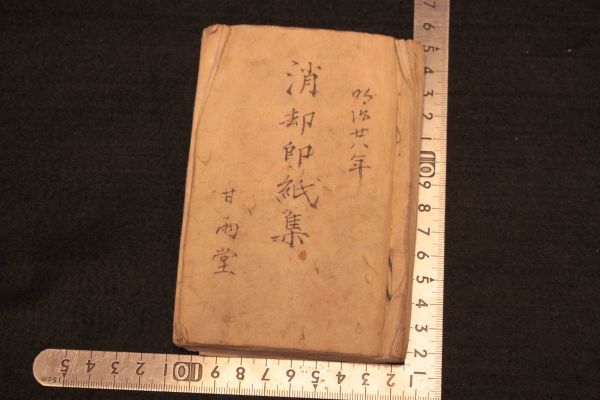 明治廿八年
消却印紙集
甘雨堂
7 6 5 4 3 2 1 10 9 8 7 6 5 4 3 2 1
15cm 4 3 2 1 10 9 8 7 6 5 4 3 2 1